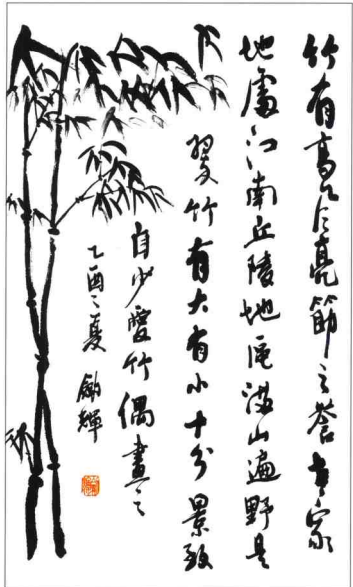 竹有高风亮節之誉吾家
地處江南丘陵地區满山遍野是
翠竹有大有小十分景致
自少愛竹偶畫之
乙酉之夏 劍輝